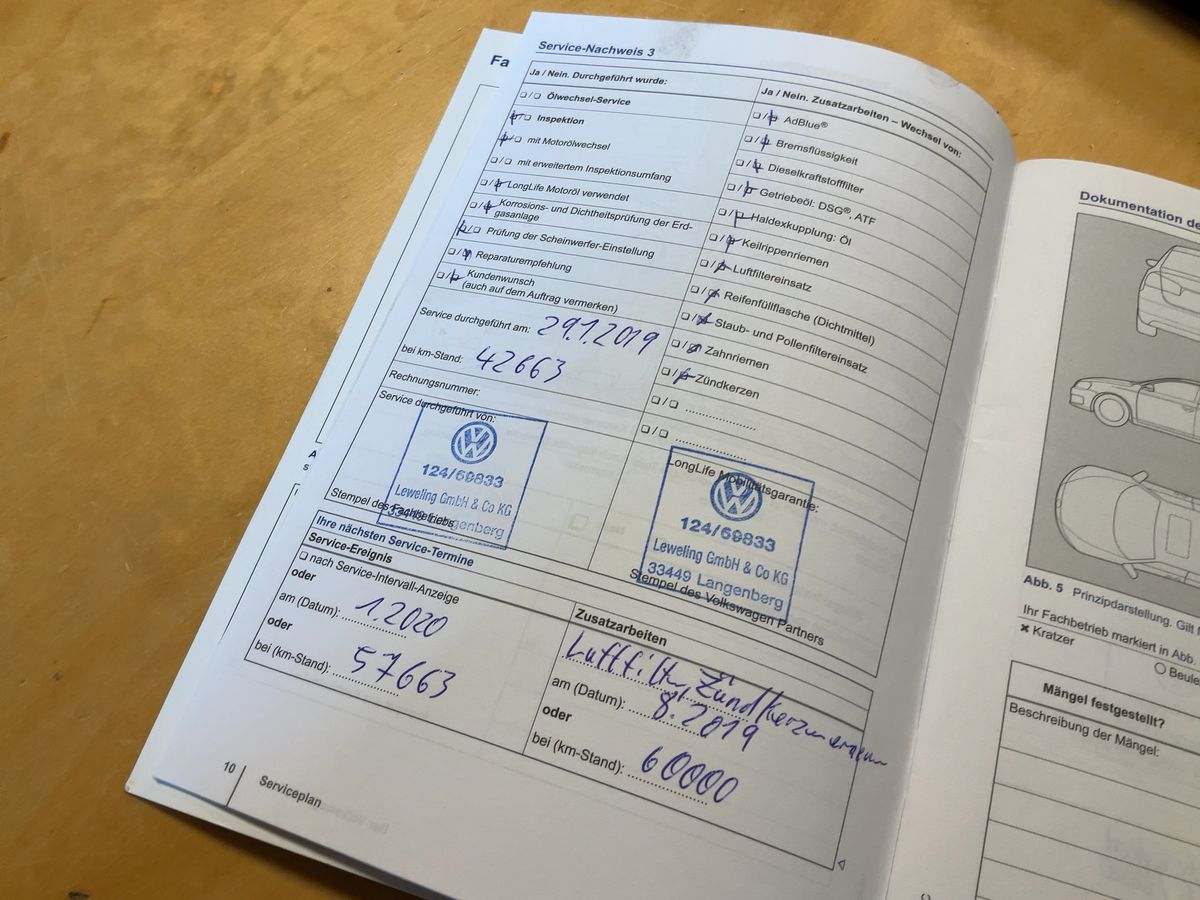 Fa
Service-Nachweis 3
Ja / Nein. Durchgeführt wurde:
❑/❑ Ölwechsel-Service
❑/❑ Inspektion
❑/❑ mit Motorölwechsel
❑/❑ mit erweitertem Inspektionsumfang
❑/❑ LongLife Motoröl verwendet
❑/❑ Korrosions- und Dichtheitsprüfung der Erd-
gasanlage
❑/❑ Prüfung der Scheinwerfer-Einstellung
❑/❑ Reparaturempfehlung
❑/❑ Kundenwunsch
(auch auf dem Auftrag vermerken)
Service durchgeführt am: 29.1.2019
bei km-Stand: 42663
Rechnungsnummer:
Service durchgeführt von:
124/69833
Leweling GmbH & Co KG
33449 Langenberg
Stempel des Fachbetriebs
Ja / Nein. Zusatzarbeiten – Wechsel von:
❑/❑ AdBlue®
❑/❑ Bremsflüssigkeit
❑/❑ Dieselkraftstofffilter
❑/❑ Getriebeöl: DSG®, ATF
❑/❑ Haldexkupplung: Öl
❑/❑ Keilrippenriemen
❑/❑ Luftfiltereinsatz
❑/❑ Reifenfüllflasche (Dichtmittel)
❑/❑ Staub- und Pollenfiltereinsatz
❑/❑ Zahnriemen
❑/❑ Zündkerzen
❑/❑ ....................
❑/❑ ....................
LongLife Mobilitätsgarantie:
124/69833
Leweling GmbH & Co KG
33449 Langenberg
Stempel des Volkswagen Partners
Ihre nächsten Service-Termine
Service-Ereignis
❑ nach Service-Intervall-Anzeige
oder
am (Datum): 1.2020
oder
bei (km-Stand): 57663
Zusatzarbeiten
Luftfilter, Zündkerzen
am (Datum): 8.2019
oder
bei (km-Stand): 60000
10
Serviceplan
Dokumentation de
Abb. 5 Prinzipdarstellung. Gilt f
Ihr Fachbetrieb markiert in Abb.
✖ Kratzer
○ Beule
Mängel festgestellt?
Beschreibung der Mängel: